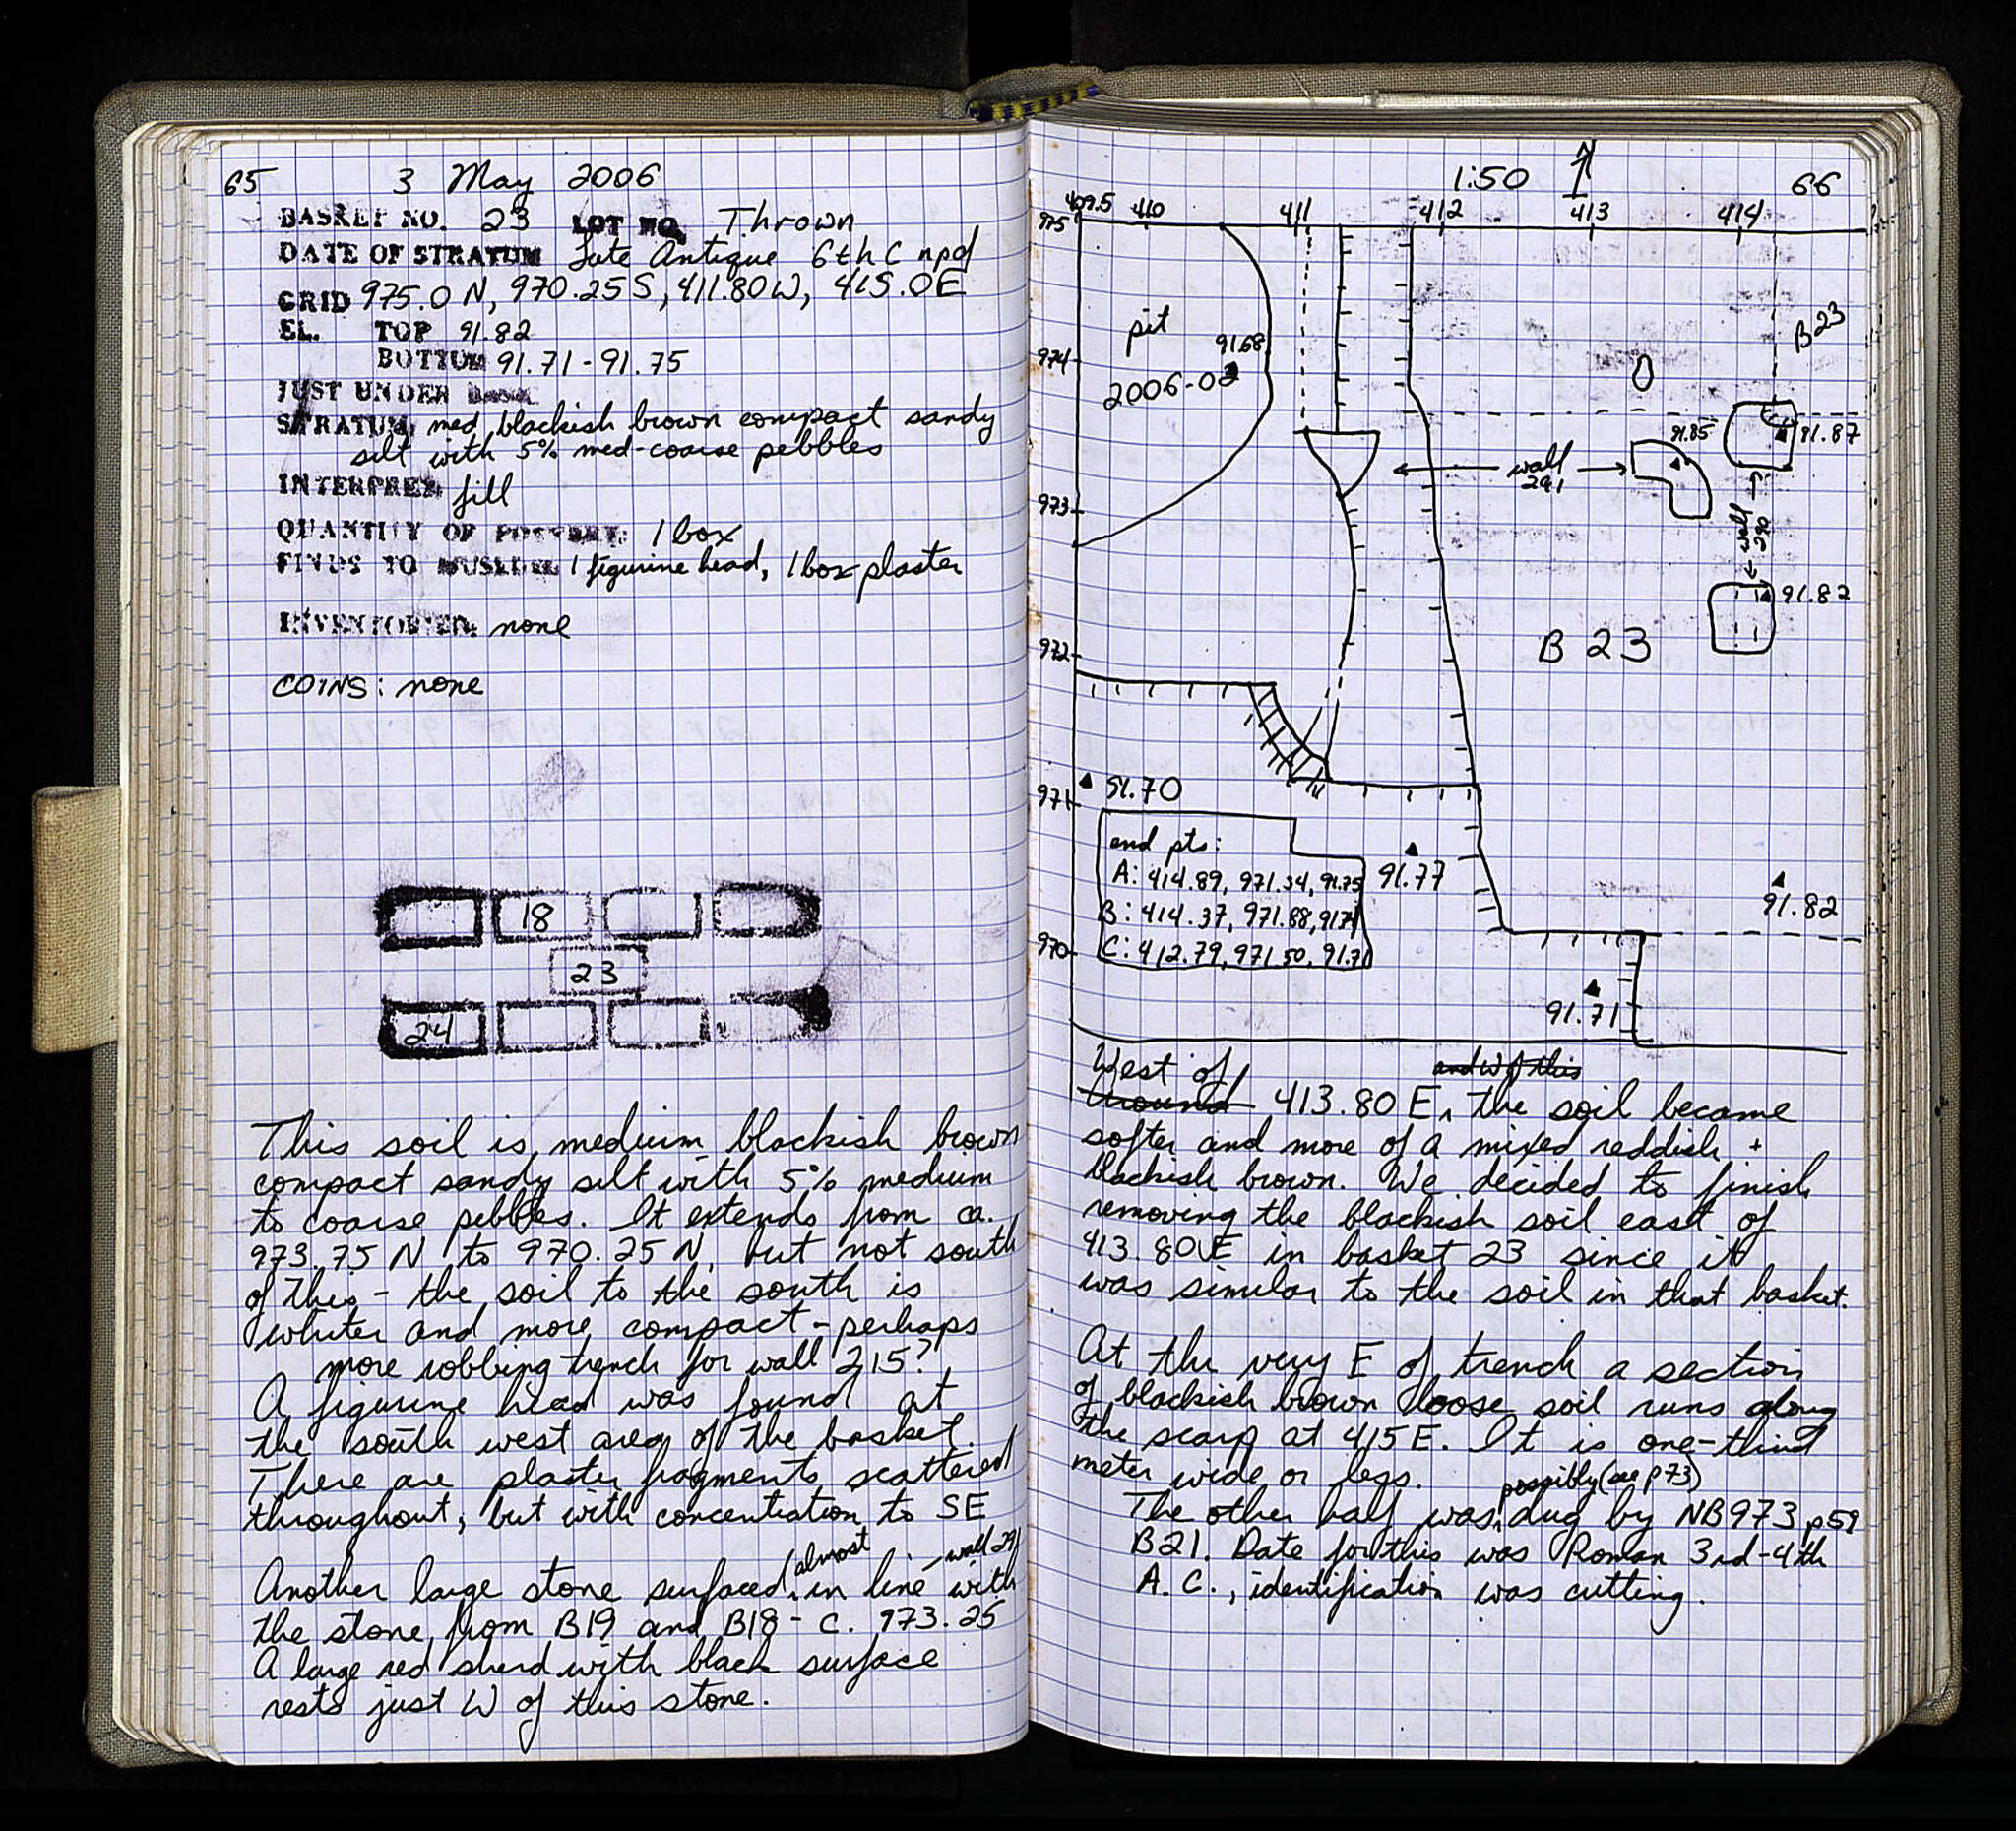 65 3 May 2006
BASKET NO. 23 LOT NO. Thrown
DATE OF STRATUM Late Antique 6th C npd
GRID 975.0 N, 970.25 S, 411.80 W, 415.0 E
EL. TOP 91.82
BOTTOM 91.71 - 91.75
JUST UNDER
STRATUM: med blackish brown compact sandy
silt with 5% med-coarse pebbles
INTERPRET. fill
QUANTITY OF POTTERY: 1 box
FINDS TO MUSEUM: 1 figurine head, 1 box plaster
INVENTORIED: none
COINS: none
18
23
24
This soil is medium blackish brown
compact sandy silt with 5% medium
to coarse pebbles. It extends from ca.
973.75 N to 970.25 N, but not south
of this - the soil to the south is
whiter and more compact - perhaps
more robbing trench for wall 215?
A figurine head was found at
the south west area of the basket.
There are plaster fragments scattered
throughout, but with concentration to SE
Another large stone surfaced, almost in line with - wall 291
the stone from B19 and B18 - c. 973.25
A large red sherd with black surface
rests just W of this stone.
1:50 66
409.5 410 411 412 413 414
975
pit
2006-02
91.68
974
B 23
91.85
91.87
wall
291
973
wall
290
91.82
972
B 23
971
91.70
end pts:
A: 414.89, 971.34, 91.75
B: 414.37, 971.88, 91.74
C: 412.79, 971.50, 91.71
91.77
91.82
970
91.71
West of and W of this
Around 413.80 E, the soil became
softer and more of a mixed reddish +
blackish brown. We decided to finish
removing the blackish soil east of
413.80 E in basket 23 since it
was similar to the soil in that basket.
At the very E of trench a section
of blackish brown loose soil runs along
the scarp at 415 E. It is one-third
meter wide or less. possibly (see p 73)
The other half was dug by NB973 p59
B21. Date for this was Roman 3rd-4th
A.C., identification was cutting.